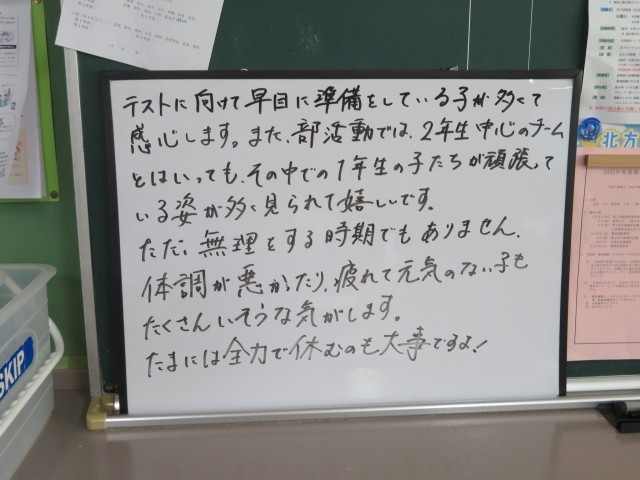 テストに向けて早目に準備をしている子が多くて
感心します。また、部活動では、2年生中心のチーム
とはいっても、その中での1年生の子たちが頑張って
いる姿が多く見られて嬉しいです。
ただ、無理をする時期でもありません。
体調が悪かったり、疲れて元気のない子も
たくさんいそうな気がします。
たまには全力で休むのも大事ですよ!
SKIP
北方